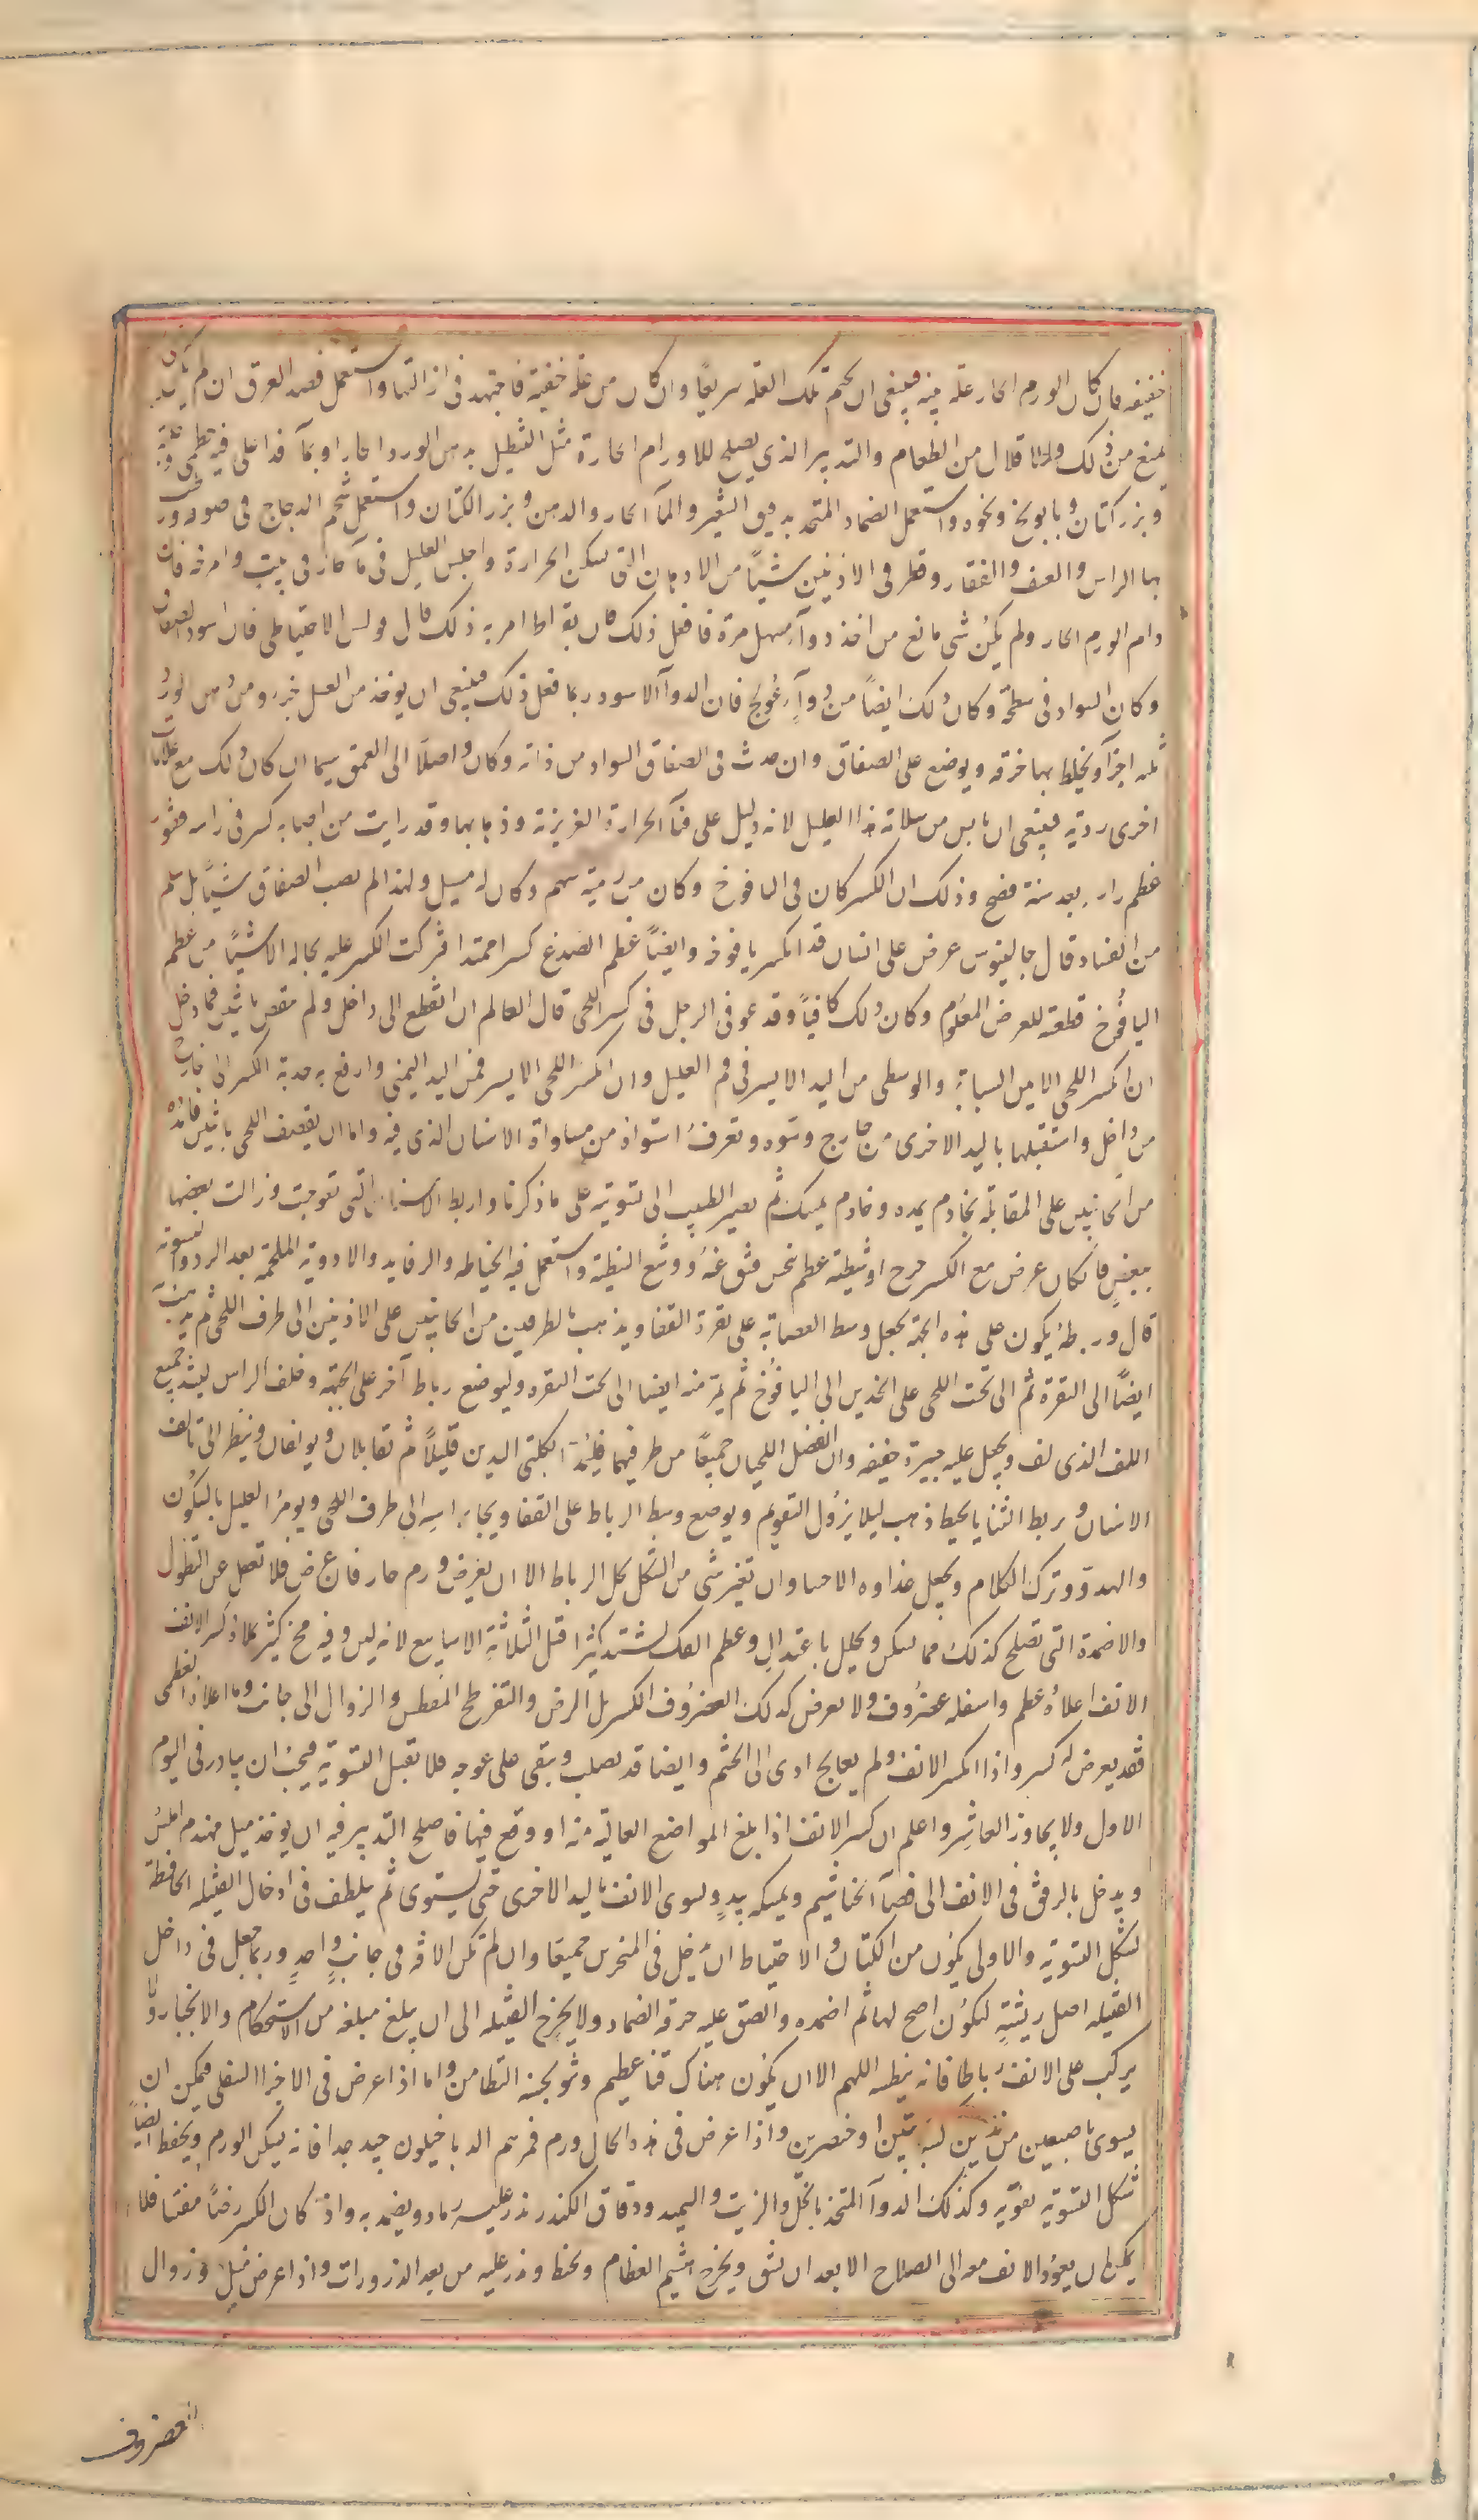 خفيفه فان كان الورم الحار علة بينه فينبغى ان تحسم تلك العلة سريعًا وان كان من علة خفية فاجتهد فى ازالتها واستعمل فصد العرق ان لم يكن شئ
يمنع من ذلك والاقلال من الطعام والتدبير الذى يصلح للاورام الحارة مثل النطيل بدهن الورد الحار او بمآء قد اغلى فيه خطمى وحلبة
وبزر كتان وبابونج ونحوه واستعمل الضماد المتخذ بدقيق الشعير والمآ الحار والدهن وبزر الكتان واستعمل شحم الدجاج فى صوفه ورطب
بها الراس والعنف والفقار وقطر فى الاذنين شيئًا من الادهان التى تسكن الحرارة واجلس العليل فى مآ حار فى بيت وامرخه فان
دام الورم الحار ولم يكن شى مانع من اخذ دوآء مسهل مرة فافعل ذلك فان بقراط امر به ذلك قال بولس الاحتياطى فان اسود الصفاق
وكان السواد فى سطحه وكان ذلك ايضًا من دوآءٍ عُولج فان الدوآ الاسود ربما فعل ذلك فينبغى ان يوخذ من العسل جزء ومن دهن الورد
ثلثه اجزآ ويخلط بها خرقه ويوضع على الصفاق وان حدث فى الصفاق السواد من ذاته وكان واصلاً الى العمق سيما ان كان ذلك مع علامات
اخرى رديه فينبغى ان يايس من سلامة هذا العليل لانه دليل على فنآ الحرارة الغريزية وذهابها وقد رايت من اصابه كسر فى راسه فنشور
عظم راسه بعد سنة فصح وذلك ان الكسر كان فى اليافوخ وكان من رمية سهم وكان له مسيل ولهذا لم يصب الصفاق شيئًا بل سلم
من الفساد قال جالينوس عرض على انسان قد انكسر يافوخه وايضًا عظم الصدغ كسرا ممتدا فتركت الكسر عليه بحاله الا شيئًا من عظم
اليافُوخ قطعته للعرض المعلوم وكان ذلك كافيًا وقد عوفى الرجل فى كسر اللحى قال العالم ان انقطع الى داخل ولم ينقصف باثنين فادخل
ان انكسر اللحى الايمن السبابة والوسطى من اليد الايسر فى فم العليل وان انكسر اللحى الايسر فمن اليد اليمنى وارفع به حدبة الكسر الى خارج
من داخل واستقبلها باليد الاخرى من خارج وسوه وتعرفُ استواه من مساواة الاسنان الذى فيه واما ان ينقصف اللحى باثنين فامدده
من الجانبين على المقابلة بخادم يمده وخادم يمسك ثم يصير الطبيب الى تسويته على ما ذكرنا واربط الاسنان التى تعوجت وزالت بعضها
ببعضٍ فان كان عرض مع الكسر جرح او شظية عظم ينخس فشق عنهُ ووسع الشظية واستعمل فيه الخياطه والرفايد والادوية الملحمة بعد الرد والتسويه
قال ورباطه يكون على هذه الجهة يجعل وسط العصابة على نقرة القفا ويذهب بالطرفين من الجانبين على الاذنين الى طرف اللحى ثم يذهب به
ايضًا الى النقرة ثم الى تحت اللحى على الخدين الى اليافُوخ ثم يمر منه ايضا الى تحت النقره وليوضع رباط آخر على الجبهة وخلف الراس ليشد جميع
اللف الذى لف ويجعل عليه جبيرة خفيفه وان انفصل اللحيان جميعًا من طرفيهما فليُمد بكلتى اليدين قليلاً ثم تقابلان ويولفان وينظر الى تالف
الاسنان ويربط الثنايا بخيط ذهب ليلا يزول التقويم ويوضع وسط الرباط على القفا ويجاء براسه الى طرف اللحى ويومرُ العليل بالسكُون
والهدوّ وترك الكلام ويجعل غذاوه الاحسا وان تغير شى من الشكل يحل الرباط الا ان يعرض ورم حار فان عرض فلا تغفل عن النطول
والاضمدة التى تصلح كذلك مما يسكن ويحلل باعتدالٍ وعظم الفك يشتد كثيرا قبل الثلاثة الاسابيع لانه لين وفيه مخ كثير كلاذكسر الانف
الانف اعلاهُ عظم واسفله غضرُوف ولا يعرض كذلك الغضرُوف الكسر بل الرض والتفرطح المفطس والزوال الى جانب وما اعلاه العظمى
فقد يعرض له كسر واذا انكسر الانف ولم يعالج ادى الى الخشم وايضا قد يصلب ويبقى على عوجه فلا تقبل التسوية فيجبُ ان يبادر فى اليوم
الاول ولا يجاوز العاشر واعلم ان كسر الانف اذا بلغ المواضع العالية منه او وقع فيها فاصلح التدبير فيه ان يوخذ ميل مهندم املس
ويدخل بالرفق فى الانف الى فضآ الخياشيم ويمسكه بيدٍ ويسوى الانف باليد الاخرى حتى يستوى ثم يلطف فى ادخال الفتيله الحافظة
لشكل التسوية والاولى يكون من الكتان والاحتياط ان يُدخل فى المنخرين جميعا وان لم تكن الافه فى جانبٍ واحدٍ وربما جعل فى داخل
الفتيله اصل ريشةٍ ليكوُن اصح لها ثم اضمده والصق عليه خرقة الضماد ولا يخرج الفتيله الى ان يبلغ مبلغه من الاستحكام والانجبار ولا
يركب على الانف رباطا فانه يفطسه اللهم الا ان يكون هناك قنا عظيم ونتو يجنه التطامن واما اذا عرض فى الاجزا السفلى فيمكن ان
يسوى باصبعين منخذين كسبابتين او خنصرين واذا عرض فى هذه الحال ورم فمرهم الدياخيلون جيد جدا فانه يسكن الورم ويحفط ايضًا
شكل التسويه بقوّته وكذلك الدوآ المتخذ بالخل والزيت والسميد ودقاق الكندر يذر عليه رماد ويضمد به واذ كان الكسر رضًا مفتتا فلا
يمكن ان يعوُد الانف معه الى الصلاح الا بعد ان تشق ويخرج هشيم العظام ويخط ويذر عليه من بعد الذرورات واذا عرض ميل وزوال
الغضروف